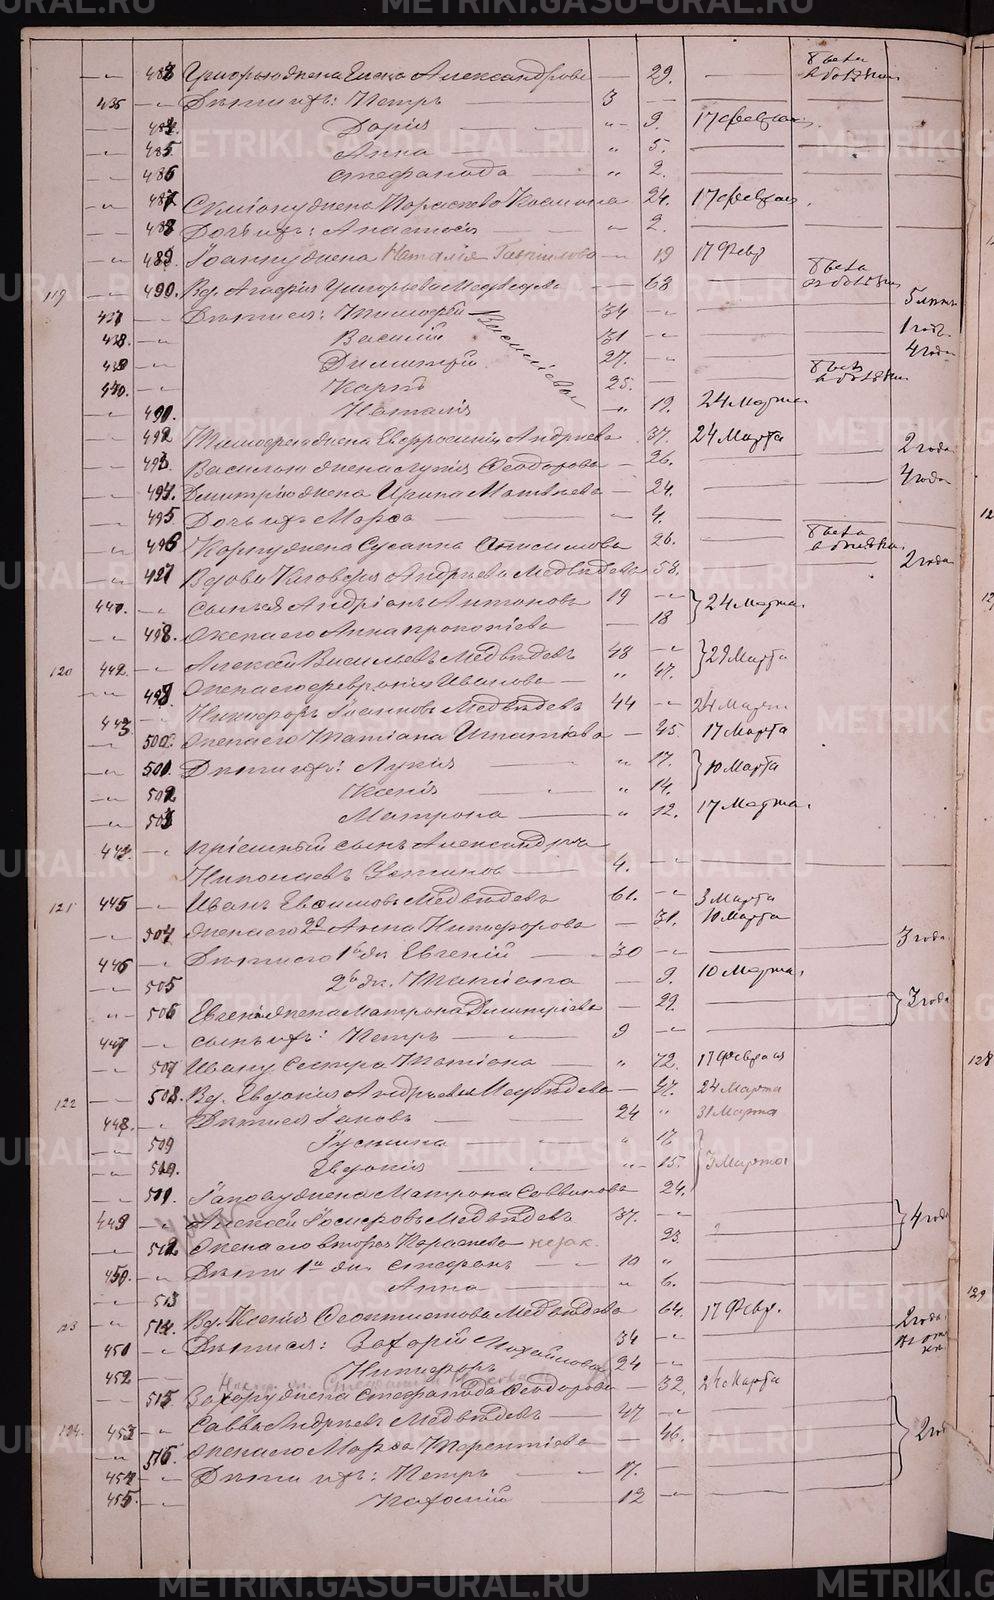 483 Григорью жена Елена Александрова — 29. была в отлучке
435 Дѣти ихъ: Петръ 3
484. Дарія 9. 17 Февраля
485 Анна 5.
486 Стефанида 2.
487 жена Параскева Космина 24. 17 Февраля
488 Дочь ихъ: Анастасія 2.
489 Іоанну жена Наталія Гаврилова 19 17 Февр
119 490. Вд. Агафія Григорьева Медвѣдева 68 была въ отлучкѣ
437 Дѣти ея: Тимофей Васильевы 34 5 лѣтъ
438. Василій 31 1 годъ
439 Димитрій 27. 4 года
440. Карпъ 25. былъ в отлучке
491. Наталія 19. 24 Марта
492 Тимофею жена Евфросинія Андреева 37. 24 Марта
493. Василью жена Лукія Феодорова 26. 2 года
494. Димитрію жена Ирина Матвѣева 24. 4 года
495 Дочь ихъ Марѳа 4.
496 Карпу жена Сусанна Анисимова 26. была в отлучке
497 Вдова Андреева Медвѣдева 58. 2 года
441. Сынъ ея Андріанъ Антоновъ 19 24 Марта
498. Жена его Анна Прокопіева 18
120 442. Алексѣй Васильевъ Медвѣдевъ 48 29 Марта
499. Жена его Февронія Иванова 47.
443 Никифоръ Іоанновъ Медвѣдевъ 44 24 Марта
500. Жена его Татіана Игнатіева 45. 17 Марта
501. Дѣти ихъ: Лукія 17. 10 Марта
502 Ксенія 14.
503 Матрона 12. 17 Марта
444. Пріемный сынъ Александръ
Николаевъ 4.
121 445 Иванъ Евсимовъ Медвѣдевъ 61. 3 Марта
504 Жена его 2я Анна Никифорова 31. 10 Марта
446 Дѣти его 1й ж. Евгеній 30 3 года
505 2й ж. Татіана 9. 10 Марта
506 Евгенія жена Матрона Димитріева 29. 3 года
447 Сынъ ихъ: Петръ 9
507 Ивану сестра Татіана 72. 17 Февраля
122 508. Вд. Евдокія Андреева Медвѣдева 47. 24 Марта
448. Дѣти ея Іаковъ 24 31 Марта
509 Іустина 17 3 Марта
510. Евдокія 15.
511. Іакову жена Матрона Саввинова 24.
449 Алексѣй Медвѣдевъ 37. 4 года
512. Жена его вторая Параскева 23.
450. Дѣти 1й ж. Стефанъ 10
513 Анна 6.
123 514. Вд. Ксенія Феоктистова Медвѣдева 64. 17 Февр.
451 Дѣти ея: Захарій Михайловы 34 2 года
452 Никифоръ 24
515 Захару жена Стефанида Феодорова 32, 24 Марта
124. 453 Савва Андреевъ Медвѣдевъ 47 2 год
516. Жена его Марѳа Терентіева 46.
454 Дѣти ихъ: Петръ 17.
455. 12